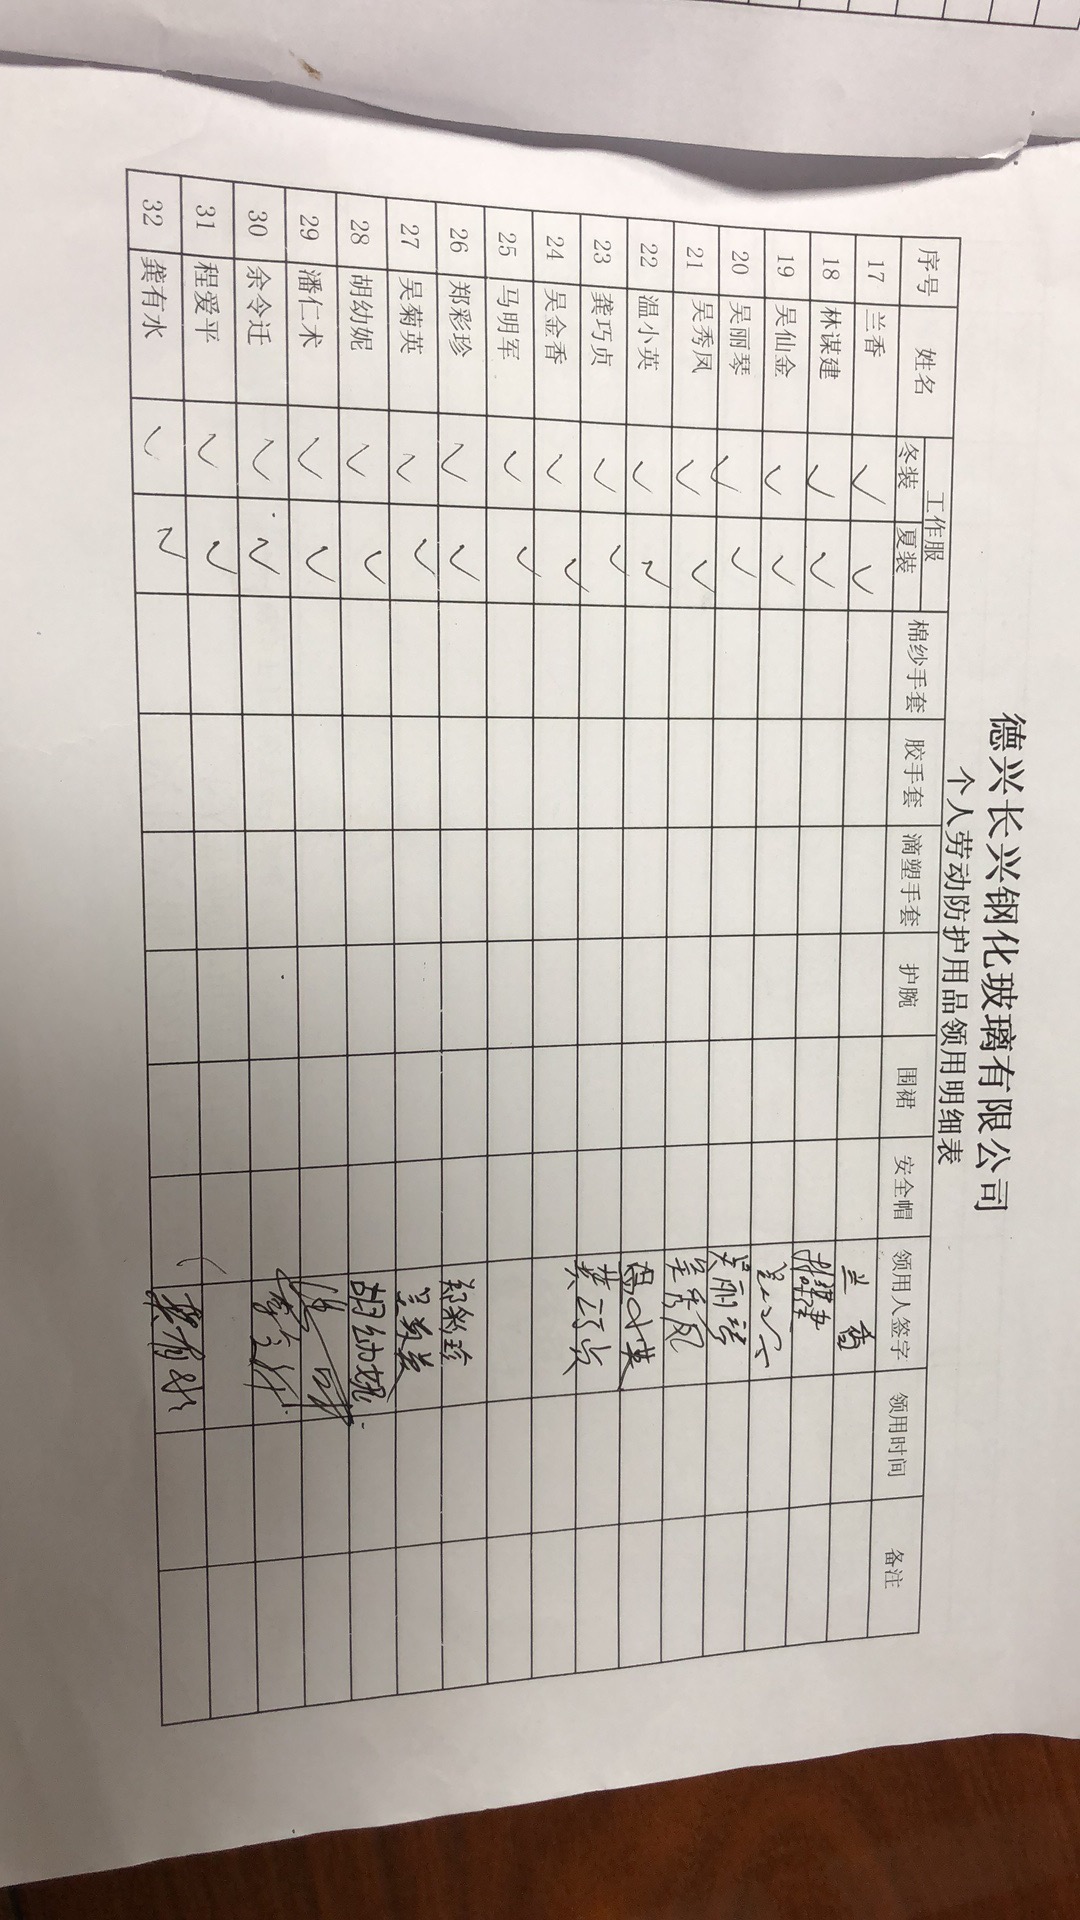 德兴长兴钢化玻璃有限公司
个人劳动防护用品领用明细表
序号 姓名 工作服 棉纱手套 胶手套 滴塑手套 护腕 围裙 安全帽 领用人签字 领用时间 备注
冬装 夏装
17 兰香 ✓ ✓ 兰香
18 林谋建 ✓ ✓ 林谋建
19 吴仙金 ✓ ✓
20 吴丽琴 ✓ ✓ 吴丽琴
21 吴秀凤 ✓ ✓ 吴秀凤
22 温小英 ✓ ✓ 温小英
23 龚巧贞 ✓ ✓
24 吴金香 ✓ ✓
25 马明军 ✓ ✓
26 郑彩珍 ✓ ✓ 郑彩珍
27 吴菊英 ✓ ✓
28 胡幼妮 ✓ ✓ 胡幼妮
29 潘仁术 ✓ ✓
30 余令迁 ✓ ✓
31 程爱平 ✓ ✓
32 龚有水 ✓ ✓ 龚有水